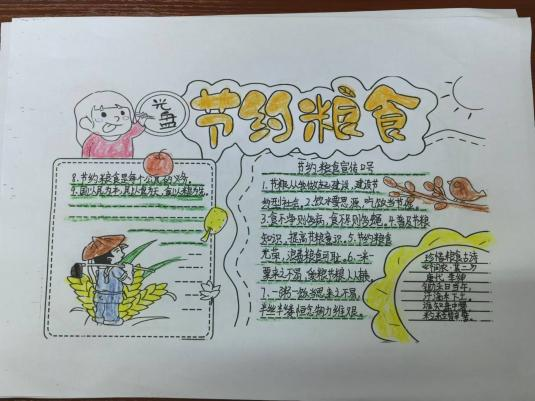 节约粮食
光盘
8.节约粮食是每个公民的义务。
9.国以民为本,民以食为天,食以粮为先。
节约粮食宣传口号
1.节粮从我做起,建设节
约型社会。2.饮水要思源,吃饭当节
3.食不学则伤病,食不足则
知识,提高节粮意识。5.节约粮食
光荣,浪费粮食可耻。6.一米一
粟来之不易,
7.一粥一饭当思来之不易,
半丝半缕恒念物力维艰。
珍惜粮食古诗
唐代 李绅
锄禾日当午,
汗滴禾下土。
谁知盘中餐,
粒粒皆辛苦。